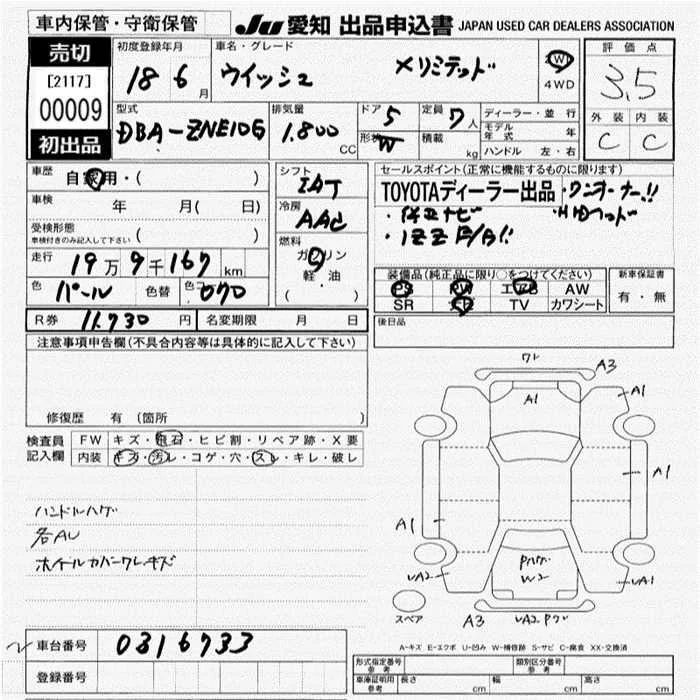 車内保管・守衛保管
JU 愛知 出品申込書 JAPAN USED CAR DEALERS ASSOCIATION
売切
[2117]
00009
初出品
初度登録年月
18 6 月
車名・グレード
ウイッシュ Xリミテッド
2WD
4WD
評価点
3.5
外装 内装
C C
型式
DBA-ZNE10G
排気量
1.800 CC
ドア 5
形状 W
定員 7人
積載 kg
ディーラー・並行
モデル年式 年
ハンドル 左・右
車歴
自家用・( )
車検 年 月( 日)
受検形態
車検付きのみ記入して下さい ( )
走行 19万9千167km
色 パール 色替 色コ 070
シフト
IAT
冷房
AAC
燃料
ガソリン
軽・油
( )
セールスポイント(正常に機能するものに限ります)
TOYOTAディーラー出品 ・ワンオーナー!!
・純正ナビ ・HIDヘッド
・1ZZ F/B!!
装備品(純正品に限り○をつけてください)
PS PW エアB AW
SR TV カワシート
新車保証書
有・無
R券 11.730 円 名変期限 月 日
後日品
注意事項申告欄(不具合内容等は具体的に記入して下さい)
修復歴 有(箇所 )
検査員
記入欄
FW キズ・飛石・ヒビ割・リペア跡・X要
内装 キズ・汚レ・コゲ・穴・スレ・キレ・破レ
ハンドルハゲ
各AU
ホイールカバーワレキズ
ワレ
A3
A1
A1
A1
A1
W2
UA2
UA1
スペア
A3
UA2
A-キズ E-エクボ U-凹み W-補修跡 S-サビ C-腐食 XX-交換済
車台番号 0316733
登録番号
形式指定番号
参考
類別区分番号
参考
車庫証明用
参考
長さ cm 幅 cm 高さ cm